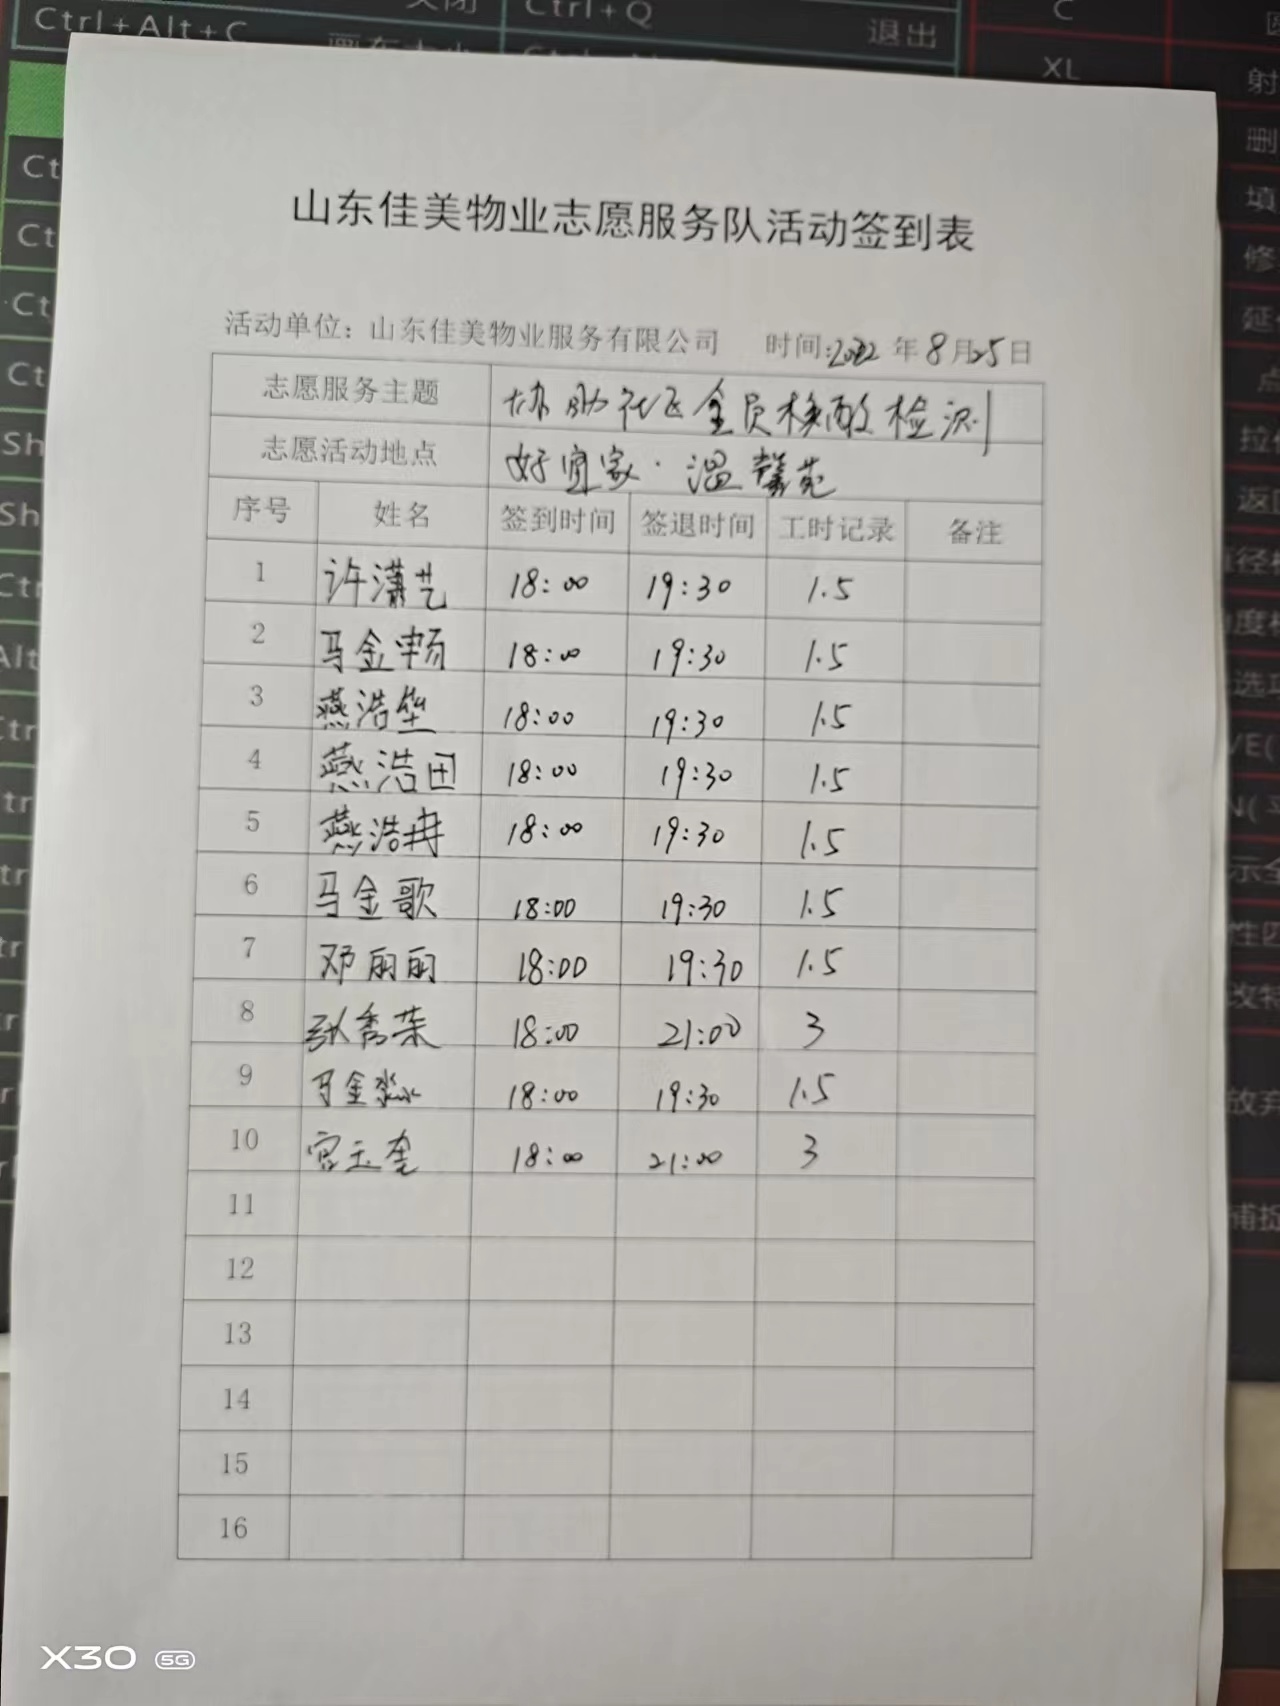 关闭
Ctrl+Q
C
Ctrl+Alt+C
画布大小
退出
XL
山东佳美物业志愿服务队活动签到表
活动单位：山东佳美物业服务有限公司 时间:2022年8月25日
志愿服务主题 协助社区全员核酸检测
志愿活动地点 好宜家·温馨苑
序号 姓名 签到时间 签退时间 工时记录 备注
1 许潇艺 18:00 19:30 1.5
2 马金畅 18:00 19:30 1.5
3 燕浩 18:00 19:30 1.5
4 燕浩田 18:00 19:30 1.5
5 燕浩冉 18:00 19:30 1.5
6 马金歌 18:00 19:30 1.5
7 邓丽丽 18:00 19:30 1.5
8 张秀荣 18:00 21:00 3
9 马金淼 18:00 19:30 1.5
10 宫玉奎 18:00 21:00 3
11
12
13
14
15
16
X30 5G